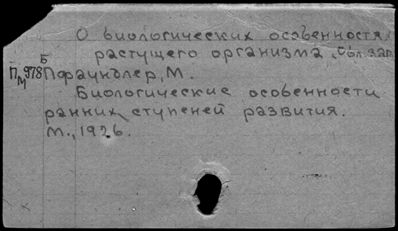 О биологических особенностя
растущего организма. Обл. заг.
Б
П М 978 Пфаундлер, М.
Биологические особенности
ранних ступеней развития.
М., 1926.